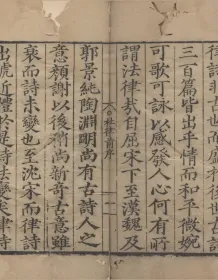 律詩非古也
三百篇皆出乎情而和平微婉
可歌可咏以感發人心何有所
謂法律哉自屈宋下至漢魏及
杜律前序
一
郭景純陶淵明尚有古詩人之
意顔謝以後稍尚新奇古意雖
衰而詩未變也至沈宋而律詩
出號近體於是詩法變矣律詩